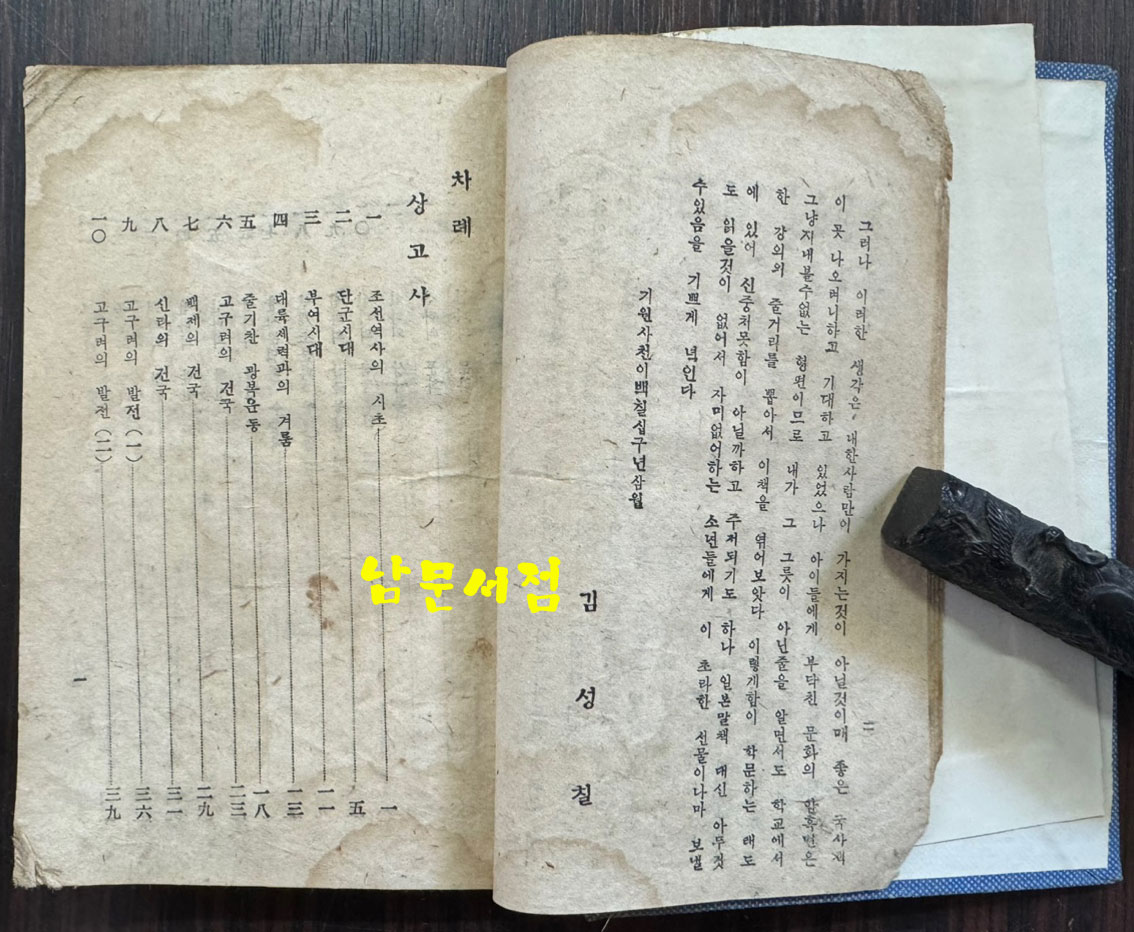 그러나 이러한 생각은 내한사람만이 가지는것이 아닐것이매 좋은 국사책
이 못 나오려니하고 기대하고 있었으나 아이들에게 부닥친 문화의
그냥지내볼수없는 형편이므로 내가 그 그릇이 아닌줄을 알면서도 학교에서
한 강의의 줄거리를 뽑아서 이책을 엮어보았다 이렇게함이 학문하는 태도
에 있어 신중치못함이 아닐까하고 주저되기도 하나 일본말책 대신 아무것
도 읽을것이 없어서 자미없어하는 소년들에게 이 초라한 선물이나마 보낼
수있음을 기쁘게 녁인다
기원사천이백칠십구년삼월
김성칠
二
차례
상고사
一 조선역사의 시초 一
二 단군시대 五
三 부여시대 一一
四 대륙세력과의 겨룸 一三
五 줄기찬 광복운동 一八
六 고구려의 건국 二三
七 백제의 건국 二九
八 신라의 건국 三一
九 고구려의 발전(一) 三六
一〇 고구려의 발전(二) 三九
一
남문서점